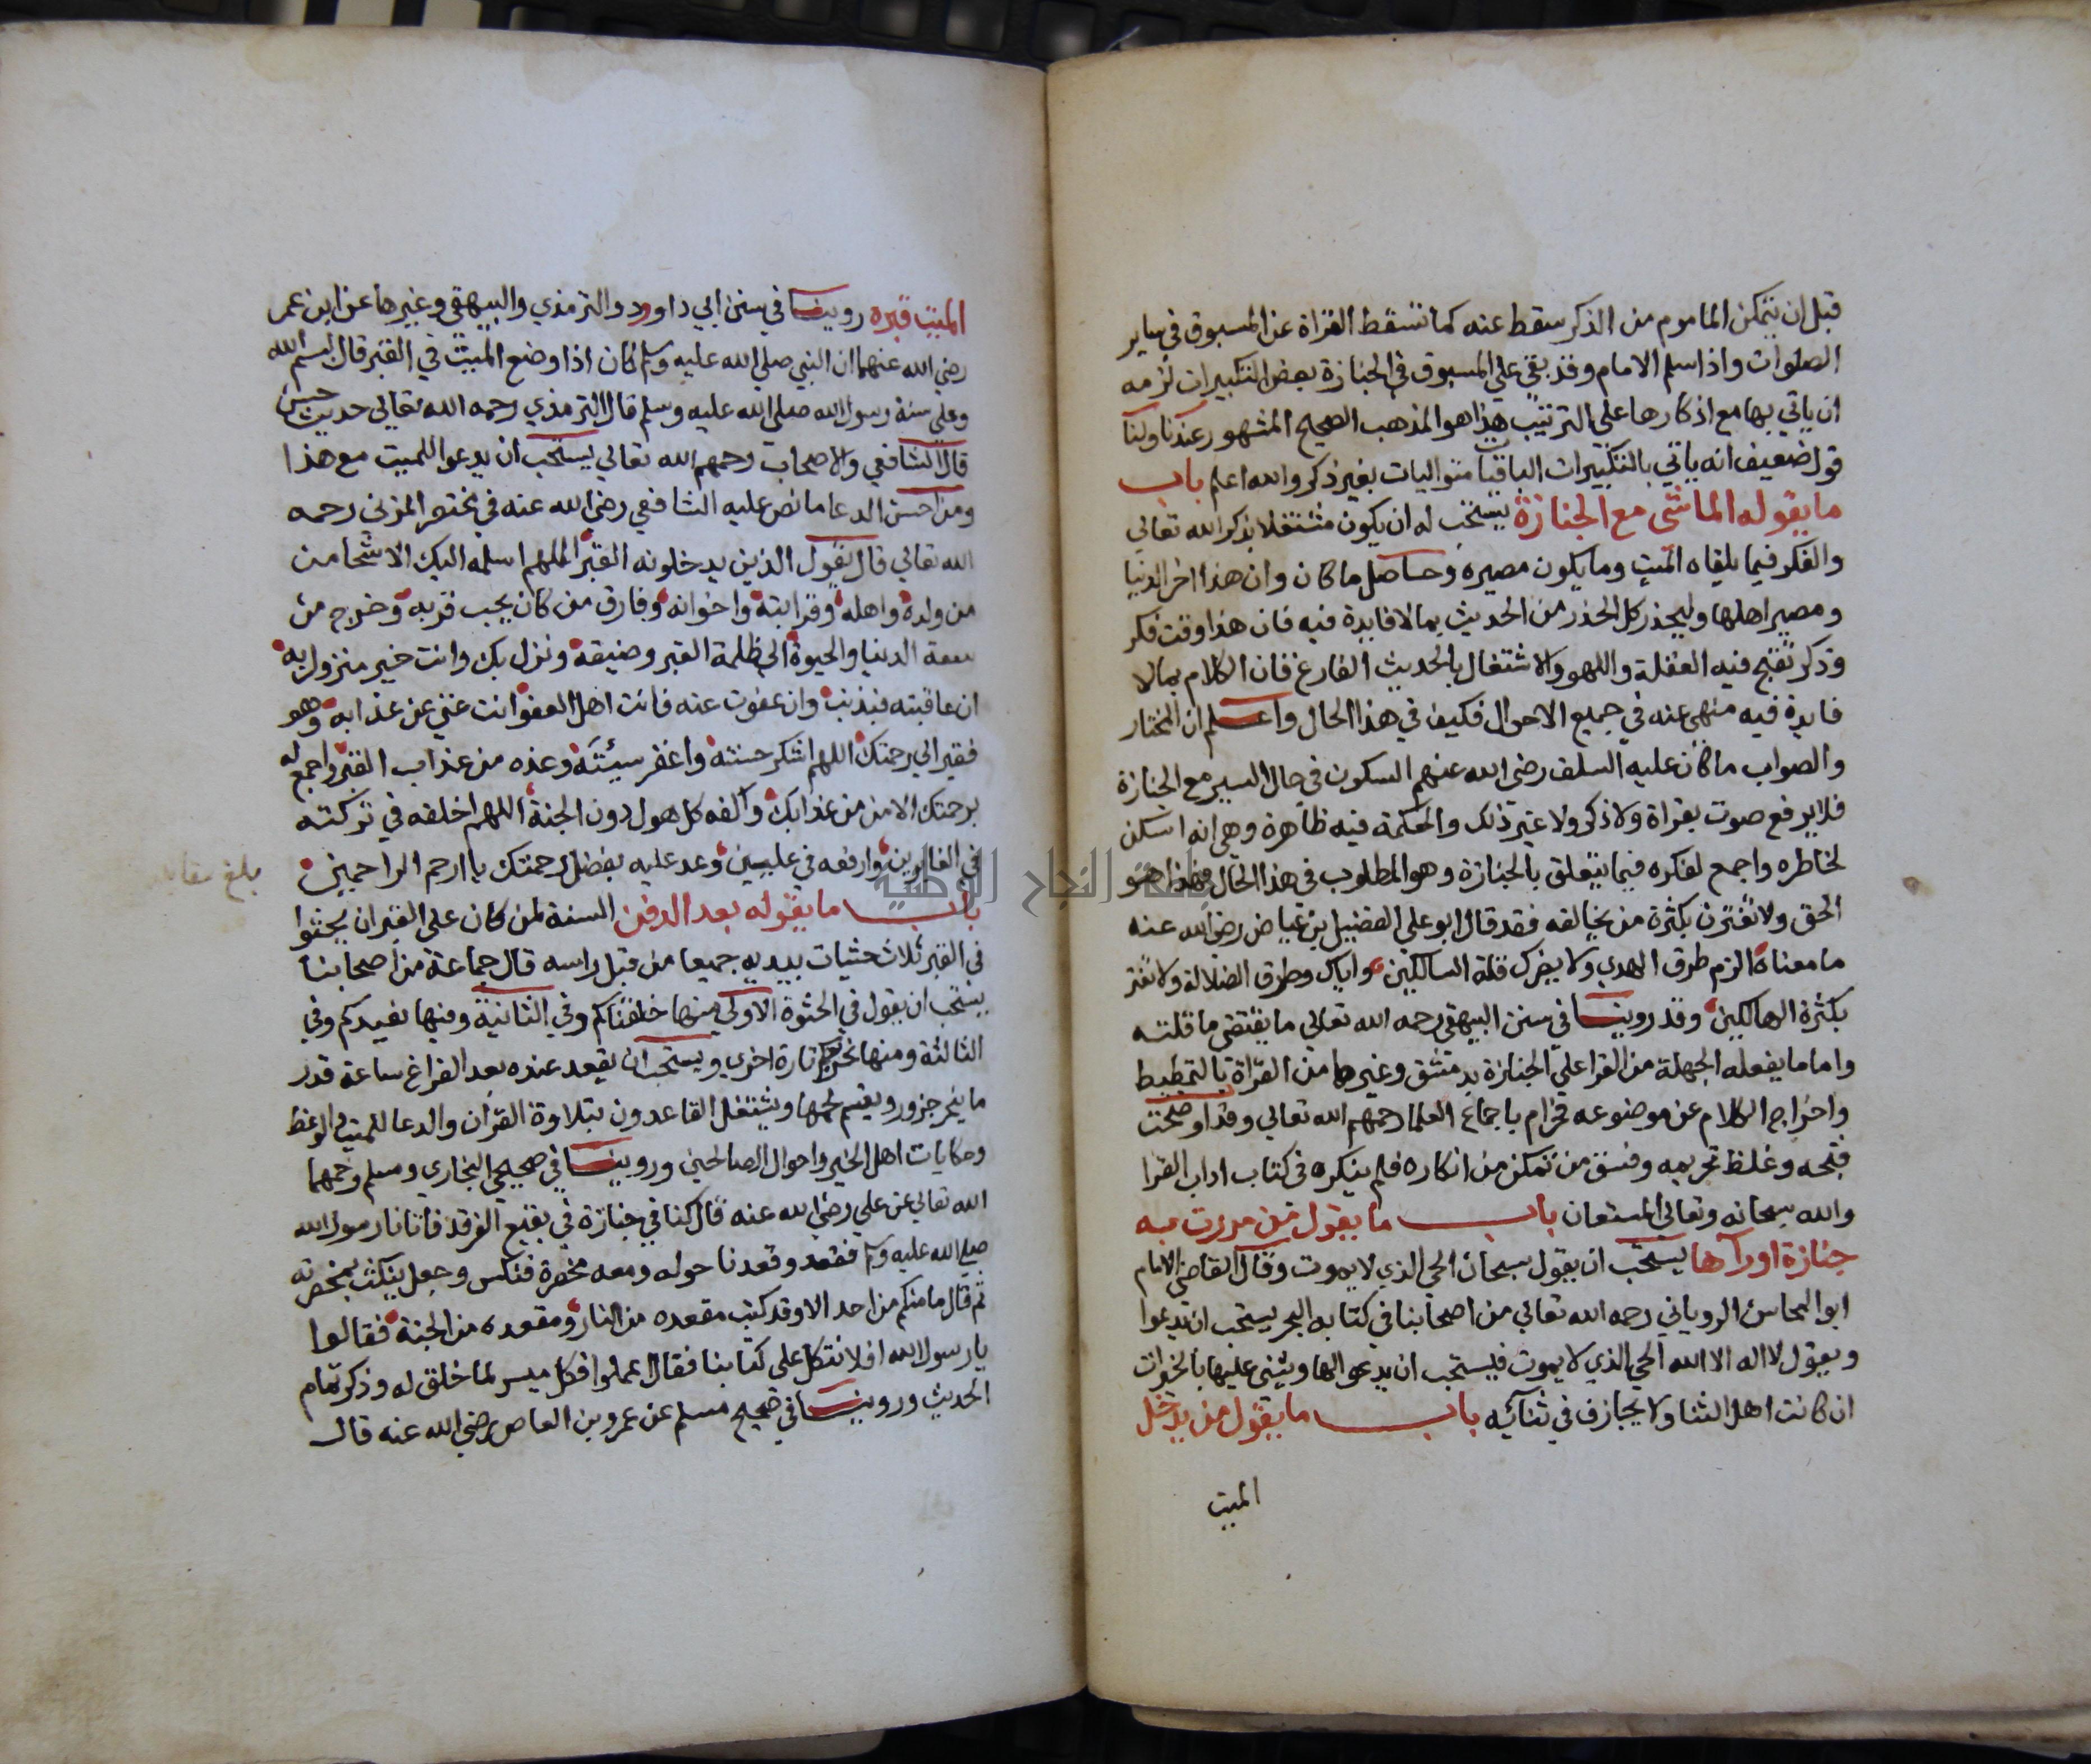 قبل ان يتمكن الماموم من الذكر سقط عنه كما تسقط القراة عن المسبوق في ساير
الصلوات واذا سلم الامام وقد بقي علي المسبوق في الجنازة بعض التكبيرات لزمه
ان ياتي بها مع اذكارها علي الترتيب هذا هو المذهب الصحيح المشهور عندنا ولنا
قول ضعيف انه ياتي بالتكبيرات الباقيات متواليات بغير ذكر والله اعلم باب
ما يقوله الماشي مع الجنازة يستحب له ان يكون مشتغلا بذكر الله تعالي
والفكر فيما يلقاه الميت وما يكون مصيره وحاصل ما كان وان هذا اخر الدنيا
ومصير اهلها وليحذر كل الحذر من الحديث بما لا فايدة فيه فان هذا وقت فكر
وذكر تقبح فيه الغفلة واللهو والاشتغال بالحديث الفارغ فان الكلام بما لا
فايدة فيه منهي عنه في جميع الاحوال فكيف في هذا الحال واعلم ان المختار
والصواب ما كان عليه السلف رضي الله عنهم السكون في حال السير مع الجنازة
فلا يرفع صوت بقراة ولا ذكر ولا غير ذلك والحكمة فيه ظاهرة وهي انه اسكن
لخاطره واجمع لفكره فيما يتعلق بالجنازة وهو المطلوب في هذا الحال فهذا هو
الحق ولا تغترن بكثرة من يخالفه فقد قال ابو علي الفضيل بن عياض رضي الله عنه
ما معناه الزم طرق الهدي ولا يضرك قلة السالكين واياك وطرق الضلالة ولا تغتر
بكثرة الهالكين وقد روينا في سنن البيهقي رحمه الله تعالي ما يقتضي ما قلته
واما ما يفعله الجهلة من القرا علي الجنازة بدمشق وغيرها من القراة بالتمطيط
واخراج الكلام عن موضوعه فحرام باجماع العلما رحمهم الله تعالي وقد اوضحت
قبحه وغلظ تحريمه وفسق من تمكن من انكاره فلم ينكره في كتاب اداب القرا
والله سبحانه وتعالي المستعان باب ما يقول من مررت به
جنازة او رآها يستحب ان يقول سبحان الحي الذي لا يموت وقال القاضي الامام
ابو المحاسن الروياني رحمه الله تعالي من اصحابنا في كتابه البحر يستحب ان يدعوا
ويقول لا اله الا الله الحي الذي لا يموت فيستحب ان يدعو لها ويثني عليها بالخيرات
ان كانت اهل الثنا ولا يجازف في ثنآئه باب ما يقول من يدخل
الميت
الميت قبره روينا في سنن ابي داوود والترمذي والبيهقي وغيرها عن ابن عمر
رضي الله عنهما ان النبي صلي الله عليه وسلم كان اذا وضع الميت في القبر قال بسم الله
وعلي سنة رسول الله صلي الله عليه وسلم قال الترمذي رحمه الله تعالي حديث حسن
قال الشافعي والاصحاب رحمهم الله تعالي يستحب ان يدعوا للميت مع هذا
ومن احسن الدعا ما نص عليه الشافعي رضي الله عنه في مختصر المزني رحمه
الله تعالي قال يقول الذين يدخلونه القبر اللهم اسلمه اليك الاشحا من
من ولده واهله وقرابته واخوانه وفارق من كان يحب قربه وخرج من
سعة الدنيا والحيوة الي ظلمة القبر وضيقه ونزل بك وانت خير منزول به
ان عاقبته فبذنب وان عفوت عنه فانت اهل العفو انت غني عن عذابه وهو
فقير الي رحمتك اللهم اشكر حسنته واغفر سيئته وعذه من عذاب القبر واجمع له
برحمتك الامن من عذابك واكفه كل هول دون الجنة اللهم اخلفه في تركته
في الغابرين وارفعه في عليين وعد عليه بفضل رحمتك يا ارحم الراحمين
بلغ مقابله
باب ما يقوله بعد الدفن السنة لمن كان علي القبر ان يحثوا
في القبر ثلاث حثيات بيديه جميعا من قبل راسه قال جماعة من اصحابنا
يستحب ان يقول في الحثوة الاولي منها خلقناكم وفي الثانية وفيها نعيدكم وفي
الثالثة ومنها نخرجكم تارة اخري ويستحب ان يقعد عنده بعد الفراغ ساعة قدر
ما ينحر جزور ويقسم لحمها ويشتغل القاعدون بتلاوة القران والدعا للميت والوعظ
وحكايات اهل الخير واحوال الصالحين وروينا في صحيحي البخاري ومسلم رحمهما
الله تعالي عن علي رضي الله عنه قال كنا في جنازة في بقيع الغرقد فاتانا رسول الله
صلي الله عليه وسلم فقعد وقعدنا حوله ومعه مخصرة فنكس وجعل ينكث بمخصرته
ثم قال ما منكم من احد الا وقد كتب مقعده من النار ومقعده من الجنة فقالوا
يا رسول الله افلا نتكل علي كتابنا فقال اعملوا فكل ميسر لما خلق له وذكر تمام
الحديث وروينا في صحيح مسلم عن عمرو بن العاص رضي الله عنه قال
جامعة النجاح الوطنية